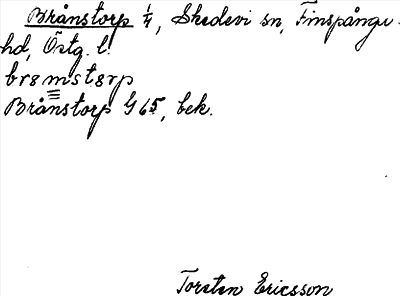 Brånstorp 1/4, Skedevi sn, Finspånga
hd, Östg. l.
brsmstsrp
Brånstorp G 65, bek.
Torsten Ericsson